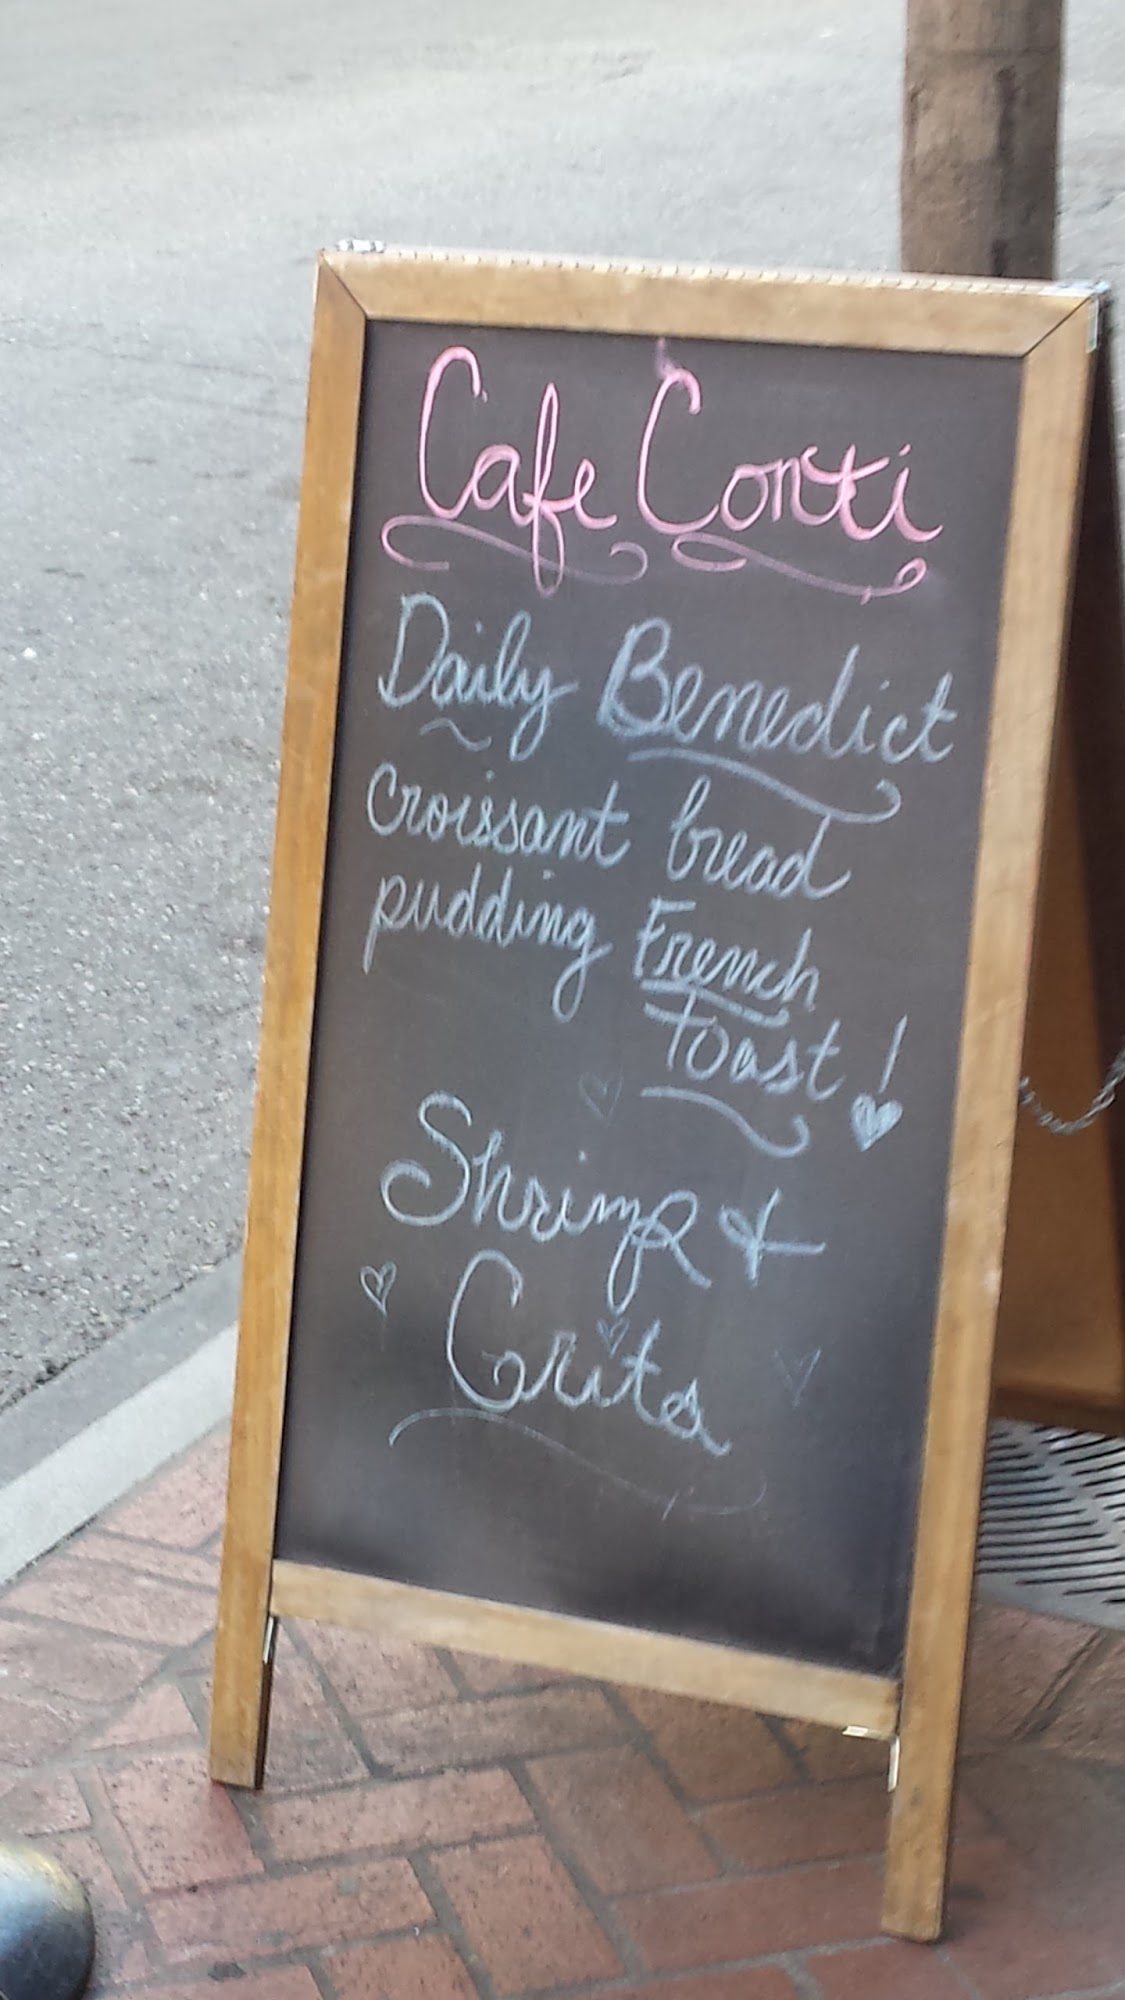 Cafe Conti
Daily Benedict
croissant bread
pudding French
Toast!
Shrimp &
Grits